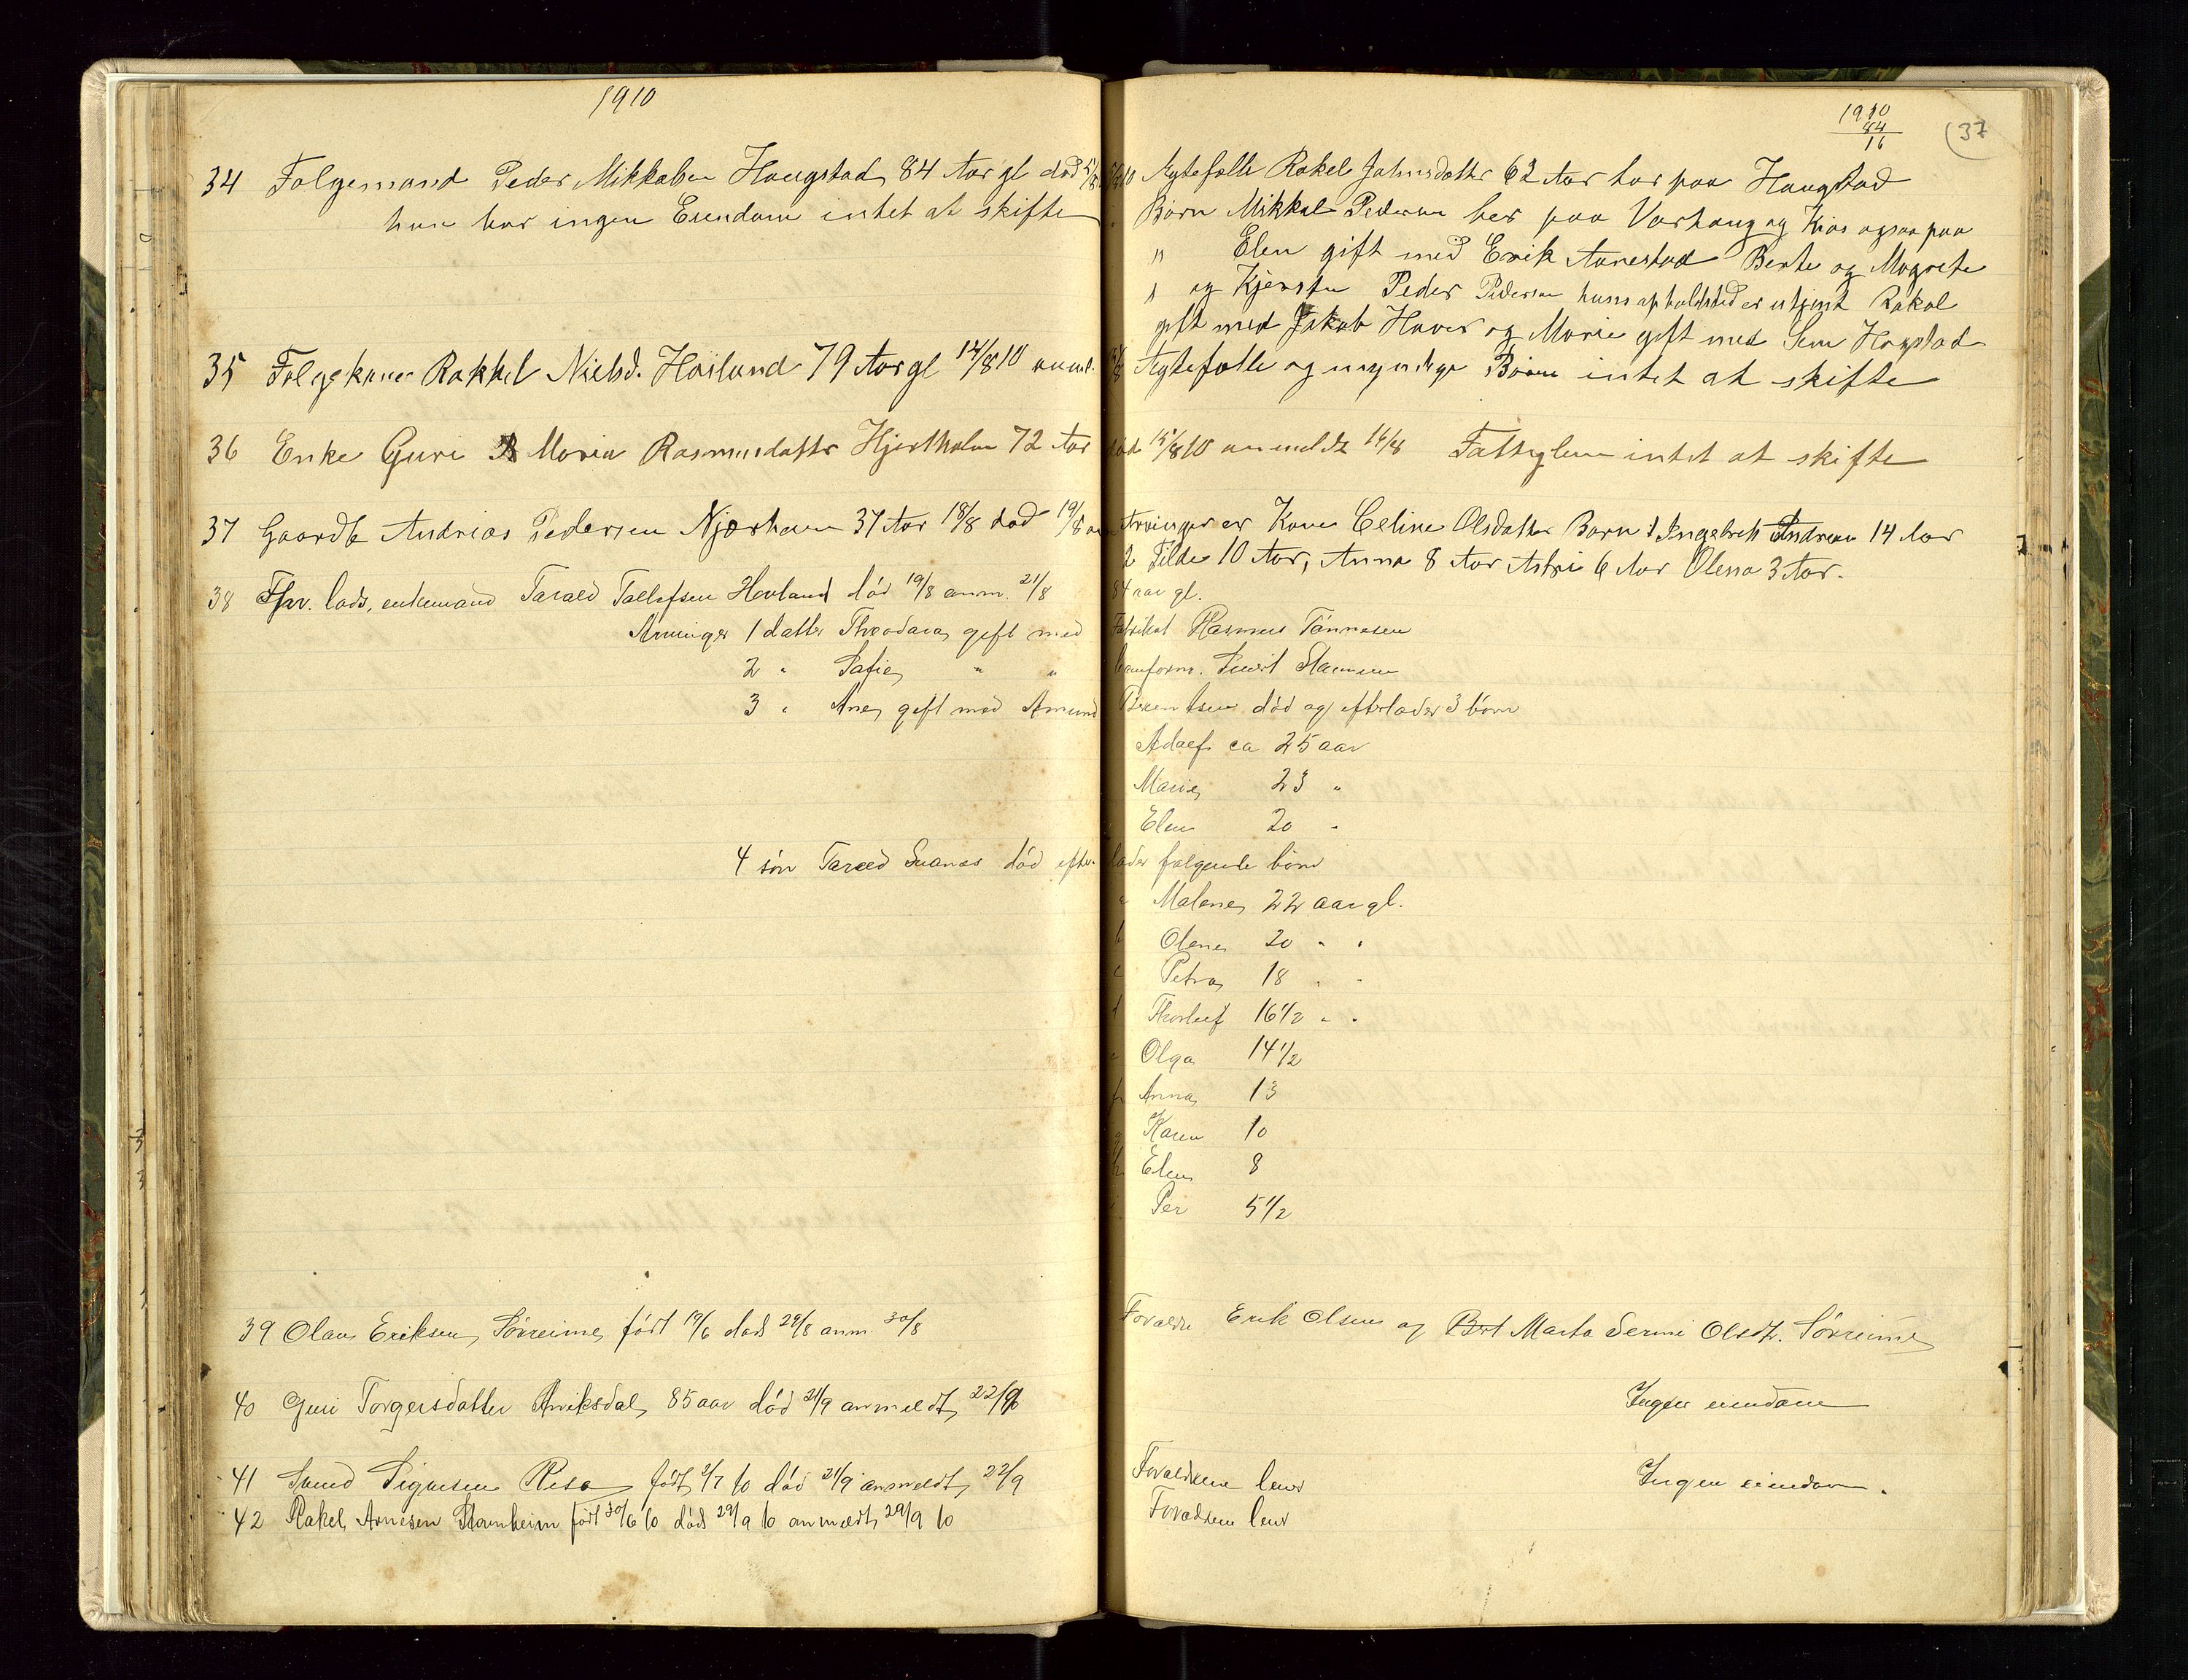 1910
1910
84
16
(37
34 Folgemand Peder Mikkalsen Haugstad 84 Aar gl død 5/8 1910 Ægtefælle Rakel Jahnsdatter 62 Aar bor paa Haugstad
han har ingen Eiendom intet at skifte Børn Mikkal Pedersen bor paa Varhaug og ogsaa paa
" Elen gift med Erik Aanestad Berte og Magrete
" og Kjersten Peder Pedersen hans opholdsted er utjent Rakal
gift med Jakob Haver og Marie gift med Sem Hogstad
35 Folgekone Rakkel Nielsd. Høiland 79 Aar gl 14/8 10 anml. Ægtefælle og myndige Børn intet at skifte
36 Enke Guri Maria Rasmusdatter Hjertholm 72 Aar død 15/8 10 anmeldt 16/8 Fattiglem intet at skifte
37 Gaardb Andreas Pedersen Njærheim 37 Aar 18/8 død 19/8 an Arvinger er Kone Celine Olsdatter Barn 1 Ingebrett Andreas 14 Aar
2 Tilde 10 Aar, Anna 8 Aar Astri 6 Aar Olena 3 Aar.
38 Fhv. lods, enkemand Tarald Tallefsen Hovland død 19/8 anm. 21/8 84 aar gl.
Arvinger 1 datter Theodara gift med Fabrikat Rasmus Tønnesen
2 " Sofie " " Sivert
3 " Ane gift med Amund Berentsen død og efterlader 3 børn
Adolf ca 25 aar
Marie 23 "
Elen 20 "
4 søn Tarald Svanes død efterlader følgende børn
a Malene 22 aar gl.
b Olene 20 " "
c Petra 18 " "
d Thorleif 16 1/2 " "
e Olga 14 1/2
f Anna 13
g Karen 10
h Elen 8
i Per 5 1/2
39 Olav Eriksen Sørreime født 19/6 død 29/8 anm. 30/8 Forældre Erik Olsen og Bert Marta Serine Olsdt. Sørreime
40 Guri Torgersdatter Aniksdal 85 aar død 21/9 anmeldt 22/9 Ingen eiendom
41 Svend Sigursen Risa født 2/7 10 død 21/9 anmeldt 22/9 Forældrene lever Ingen eiendom.
42 Rakel Arnesen Stanheim født 30/6 10 død 29/9 10 anmeldt 29/9 10 Forældrene lever